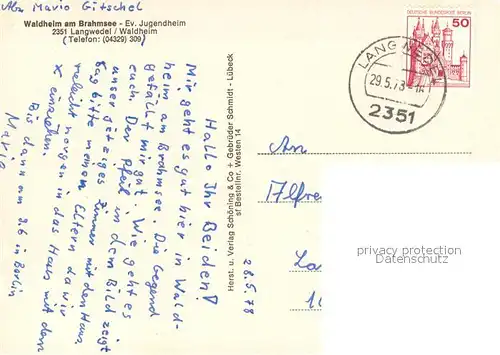 Abs. Mario Gitschel
Waldheim am Brahmsee - Ev. Jugendheim
2351 Langwedel / Waldheim
(Telefon: (04329) 309)
Hallo Ihr Beiden!
Mir geht es gut hier in Wald-
heim am Brahmsee. Die Gegend
gefällt mir gut. Wie geht es
euch. Der Pfeil in dem Bild zeigt
unser jetziges Zimmer mit den Haus.
Sag bitte meinen Eltern da wir
vielleicht morgen in das Haus mit dem
X einziehen.
Bis dann am 9.6 in Berlin
Mario
Herst. u. Verlag Schöning & Co + Gebrüder Schmidt - Lübeck
Bestellnr. Westen 14
28.5.78
DEUTSCHE BUNDESPOST BERLIN
50
LANGWEDEL
29.5.78
2351
An
Alfre
La
10
privacy protection
VeryImportantLot.com